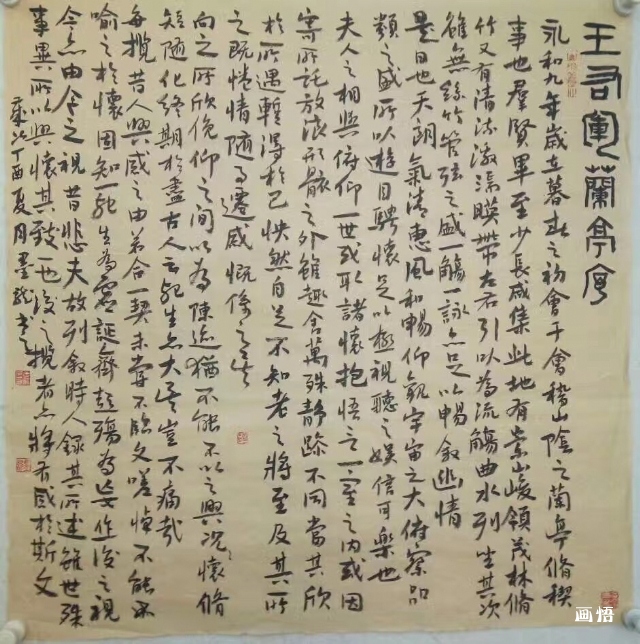 王右軍蘭亭序
永和九年歲在暮春之初會于會稽山陰之蘭亭脩稧
事也羣賢畢至少長咸集此地有崇山峻領茂林脩
竹又有清流激湍暎帶左右引以為流觴曲水列坐其次
雖無絲竹管弦之盛一觴一詠亦足以暢敘幽情
是日也天朗氣清惠風和暢仰觀宇宙之大俯察品
類之盛所以遊目騁懷足以極視聽之娛信可樂也
夫人之相與俯仰一世或取諸懷抱悟言一室之內或因
寄所託放浪形骸之外雖趣舍萬殊靜躁不同當其欣
於所遇蹔得於己怏然自足不知老之將至及其所
之既惓情隨事遷感慨係之矣
向之所欣俛仰之間以為陳迹猶不能不以之興況懷脩
短隨化終期於盡古人云死生亦大矣豈不痛哉
每攬昔人興感之由若合一契未嘗不臨文嗟悼不能不
喻之於懷固知一死生為虛誕齊彭殤為妄作後之視
今亦由今之視昔悲夫故列敘時人錄其所述雖世殊
事異所以興懷其致一也後之攬者亦將有感於斯文
歲次丁酉夏月墨龍書
画悟